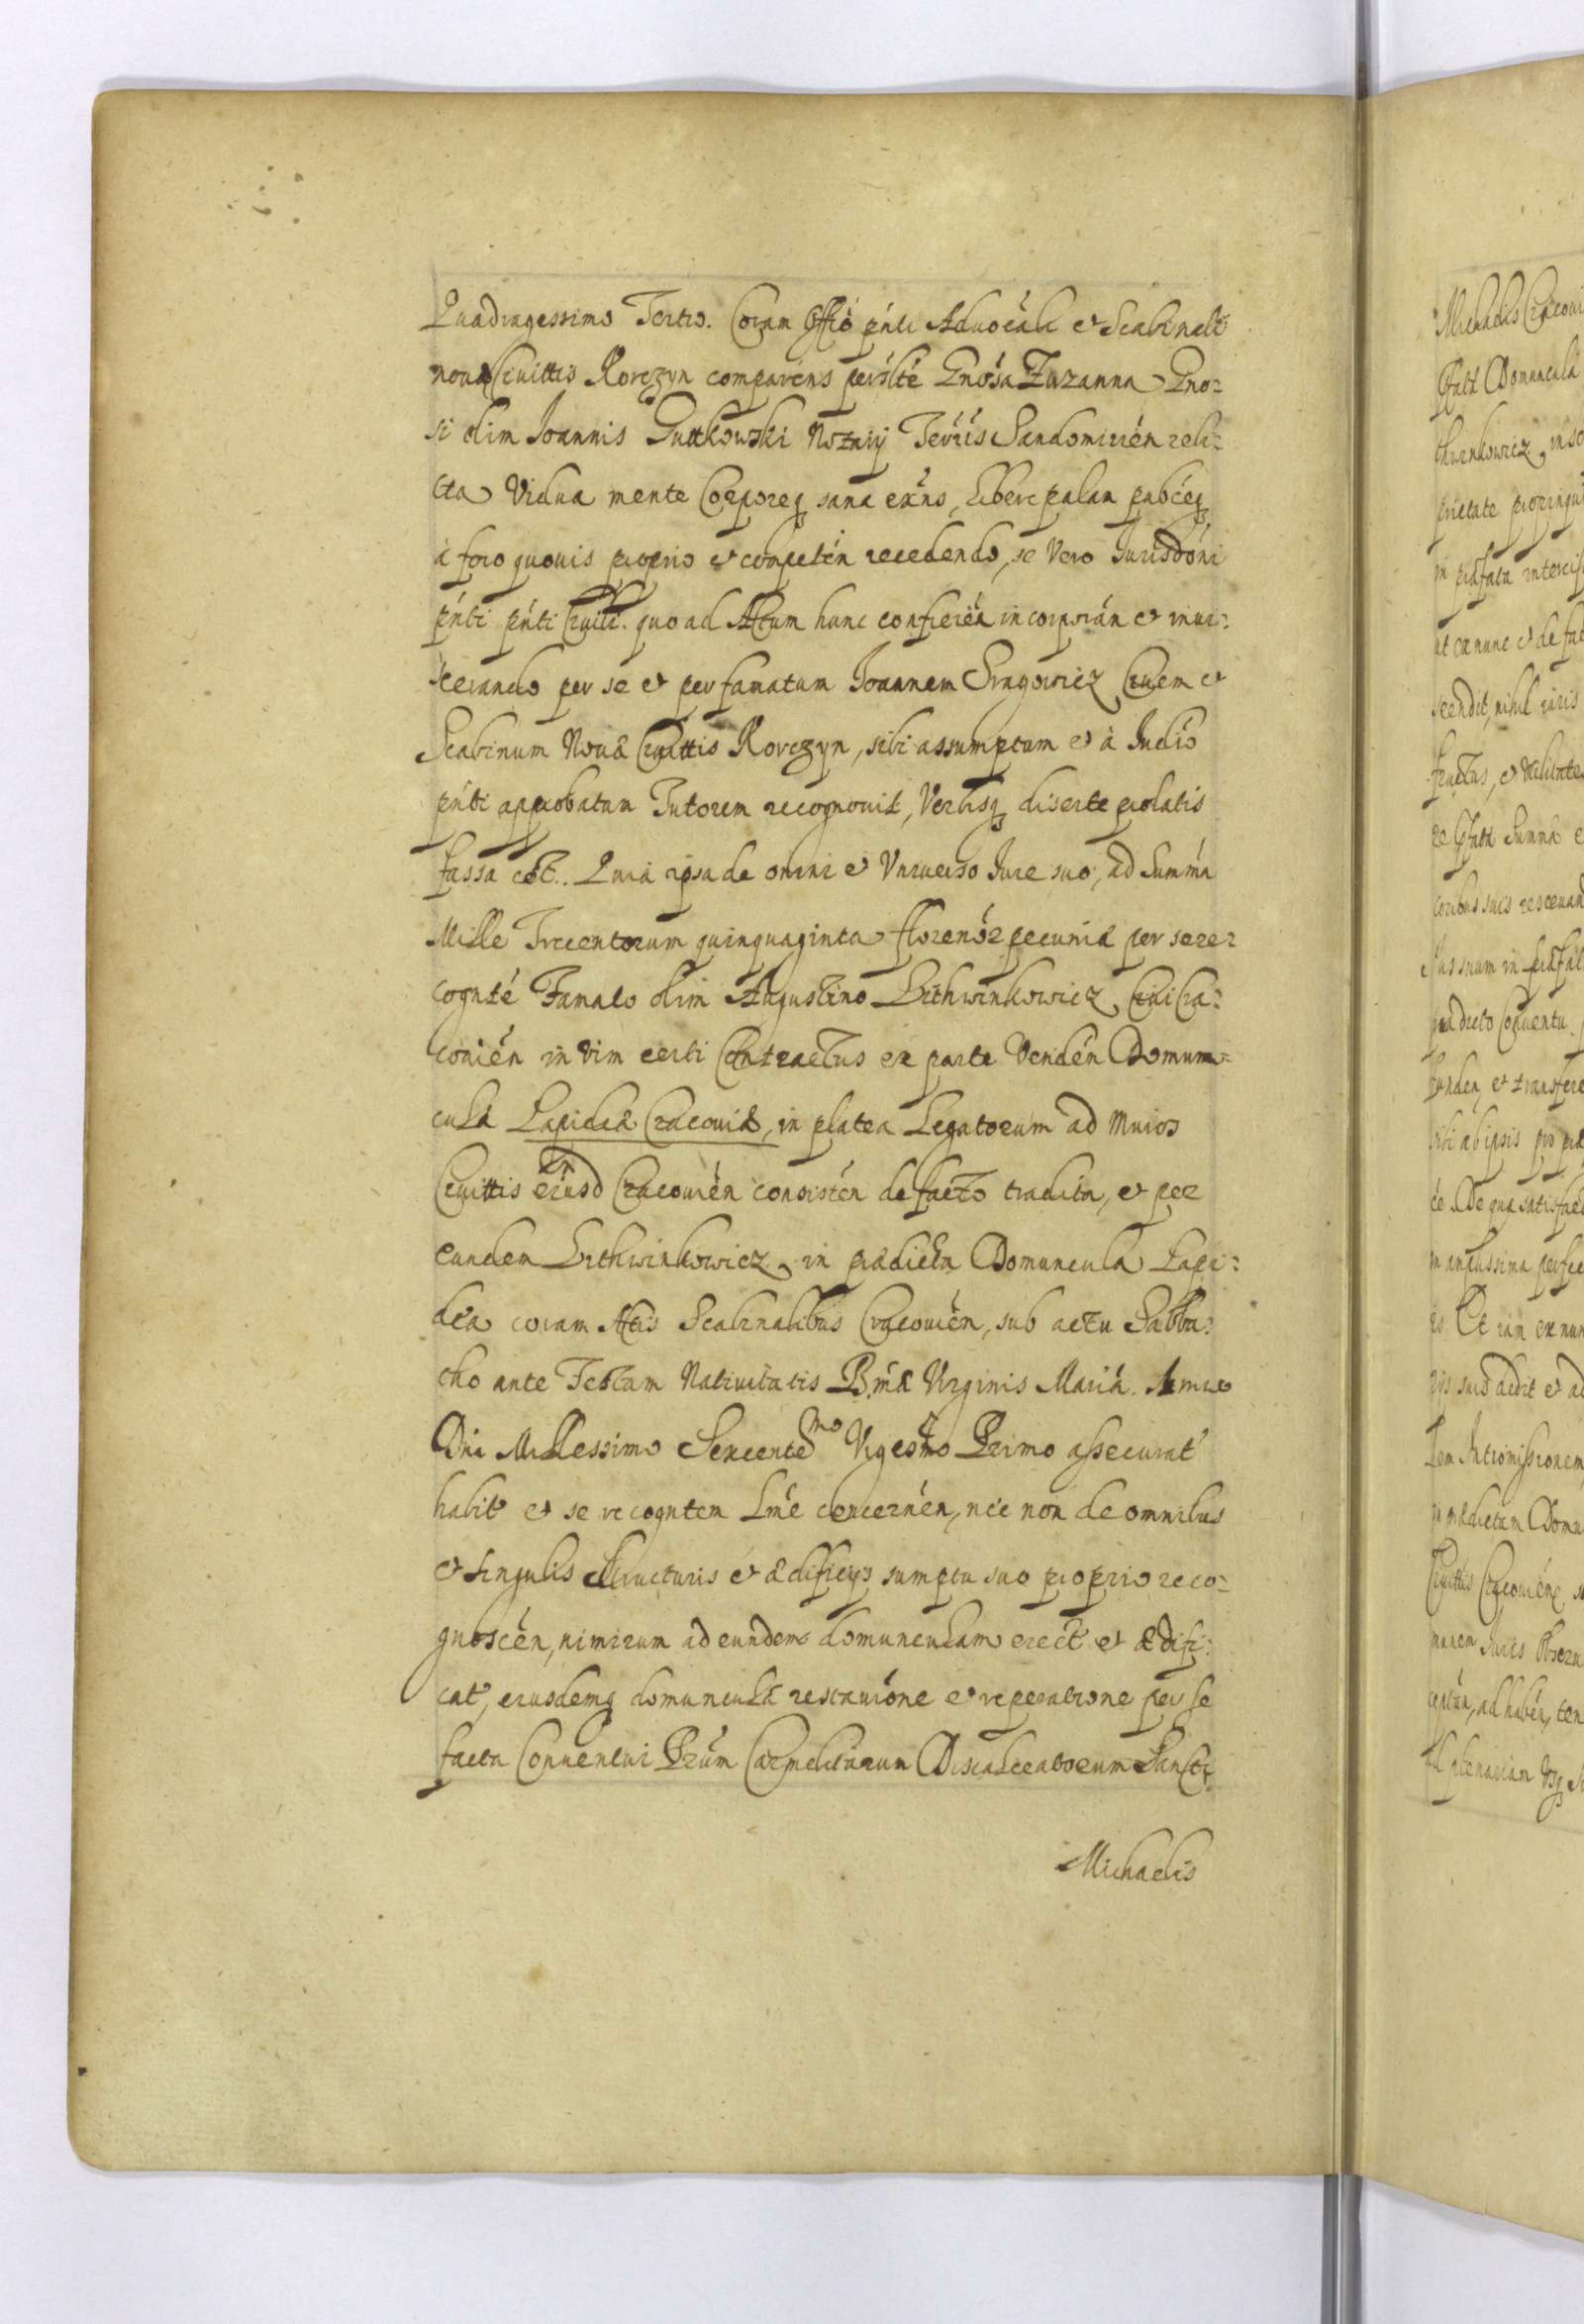 Quadragessimo Tertio. Coram Offió pńti Aduocáli et Scabinali
nouæ Ciuittis Korczyn comparens persolté Gnósa Zuzanna Gno-
si olim Joannis Guttkowski Notarij Terrís Sandomirién reli-
cta Vidua mente Corporeq sana exńs, libere palam pubćeq
à foro quouis proprio et competén recedendo, se Vero Jurisdóni
pńti pńti Ciuili. quo ad Actum hunc confieriéń incorporán et inui-
scerando per se et per famatum Joannem Sragowicz Ciuem et
Scabinum Nouæ Ciuittis Korczyn, sibi assumptum et à Iudió
pńti approbatum Tutorem recognouit, Verbisq diserte prolatis
fassa est. Quia ipsa de omni et Vniuerso Jure suo, ad Summá
Mille Trecentorum quinquaginta florenór pecuniæ per se re-
cognté Famato olim Augustino Lithwinkowicz Ciui Cra-
couién in vim certi Contractus ex parte Vendén Domun-
culæ Lapideæ Cracouiæ, in platea Legatorum ad muros
Ciuittis eiusd Cracouién consistén de facto tradita, et per
eundem Lithwinkowicz in prædicta Domuncula Lapi-
dea coram Actis Scabinalibus Cracouién, sub actu Sabba-
tho ante Festum Natiuitatis B.mæ Virginis Mariæ. Anno
Dni Millessimo Sexcente mo Vigesmo Primo assecurat
habit et se recognten Lmé concernén, nec non de omnibus
et singulis structuris et ædificijs sumptu suo proprio reco-
gnoscén, nimirum ad eundem domunculam erect et ædifi-
cat, eiusdemq domunculæ restauróne et reperatione per se
facta Conuentui Prúm Carmelitarum Discalceatorum Sancti
Michaelis